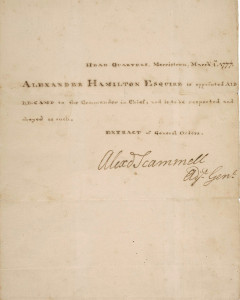 Head Quarters, Morristown, March 1st 1777.
Alexander Hamilton Esquire is appointed Aid
de-Camp to the Commander in Chief; and is to be respected and
obeyed as such.
Extract of General Orders.
Alexd. Scammell
Adjt. Genl.